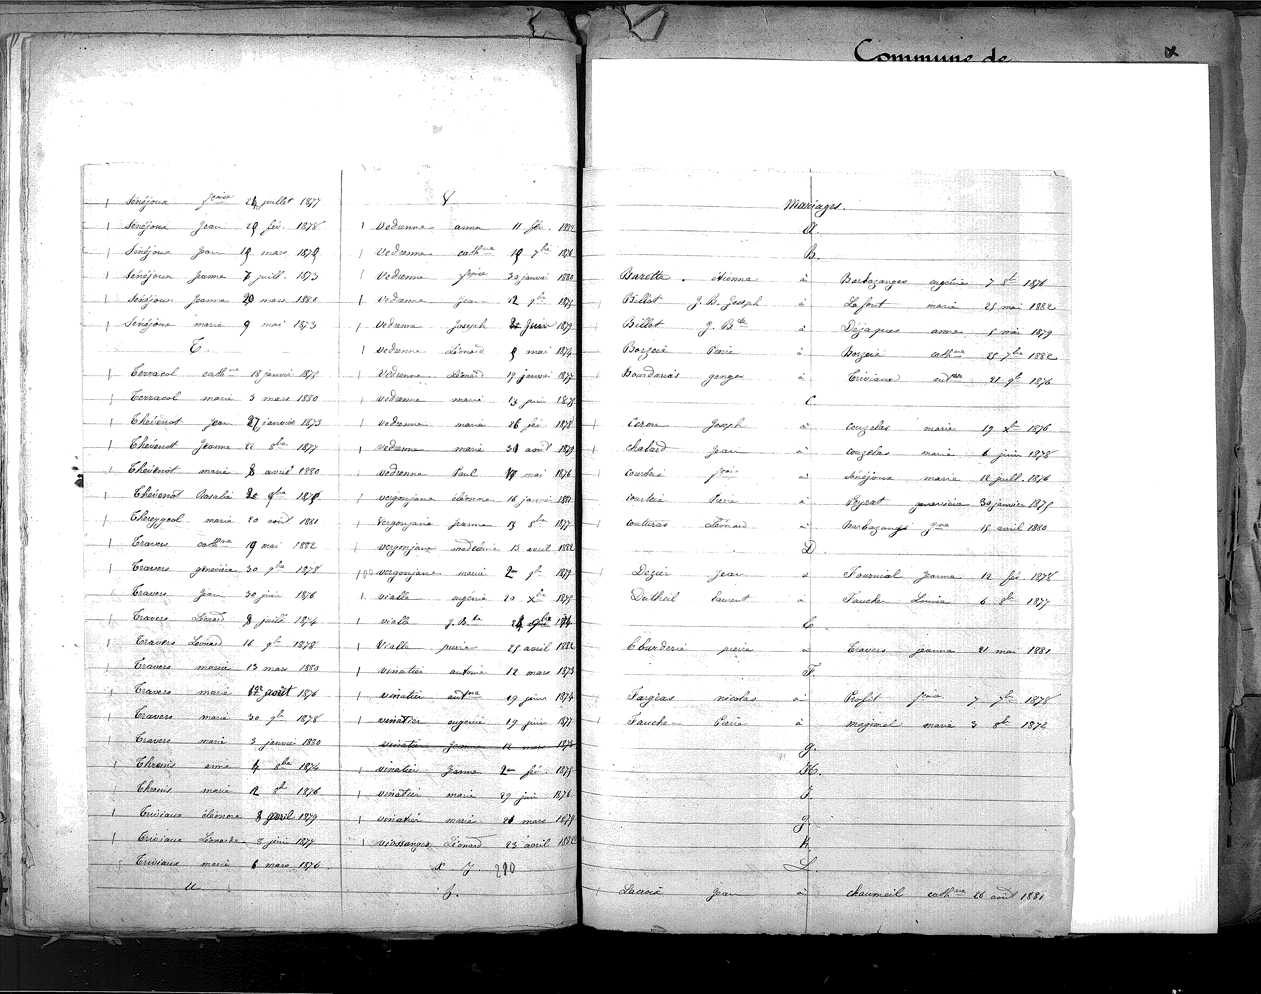 Commune de
Sénéjoux fçoise 24 juillet 1877
Sénéjoux Jean 29 fév. 1878
Sénéjoux Jean 19 mars 1879
Sénéjoux Jeanne 7 juill. 1873
Sénéjoux Jeanne 20 mars 1880
Sénéjoux marie 9 mai 1873
T.
Terracol cathne 18 janvier 1875
Terracol marie 3 mars 1880
Thévenot Jean 27 janvier 1873
Thévenot Jeanne 22 8bre 1877
Thévenot marie 8 avril 1880
Thévenot Rosalie 9bre
Thereygeol marie 20 août 1881
Travers cathne 19 mai 1882
Travers geneviève 30 9bre 1878
Travers Jean 30 juin 1876
Travers Léonard 8 juillet 1874
Travers Léonard 16 9bre 1878
Travers marie 13 mars 1880
Travers marie 1er août 1876
Travers marie 30 9bre 1878
Travers marie 3 janvier 1880
anne 4 8bre 1874
marie 12 8bre 1876
Triviaux éléonore 8 avril 1879
Triviaux Léonarde 8 juin 1877
Triviaux marie 6 mars 1876
U.
V
Vedrenne anna 11 fév. 1882
Vedrenne cathne 19 7bre 1876
Vedrenne fçoise 30 janvier 1880
Vedrenne Jean 12 9bre 1875
Vedrenne Joseph juin 1879
Vedrenne Léonard 9 mai 1874
Vedrenne Léonard 19 janvier 1877
Vedrenne marie 13 juin 1875
Vedrenne marie 26 fév. 1878
Vedrenne marie 31 août 1879
Vedrenne Paul 19 mai 1876
Vergonjane éléonore 16 janvier 1881
Vergonjane Jeanne 13 8bre 1877
Vergonjane madeleine 13 avril 1882
Vergonjane marie 2 9bre 1879
Vialle eugénie 20 Xbre 1875
Vialle J. Bte 9bre 1874
Vialle pierre 25 avril 1882
Vinatier antoine 12 mars 1873
Vinatier antne 29 juin 1874
Vinatier eugénie 19 juin 1877
Vinatier Jeanne 12 mars 1873
Vinatier Jeanne 2 fév. 1875
Vinatier marie 29 juin 1876
Vinatier marie 21 mars 1879
Léonard 23 avril 1882
X. Y. 210
Z.
Mariages.
A.
B.
Barette étienne à Barbazanges eugénie 7 8bre 1876
Billot J. B. Joseph à Lafont marie 25 mai 1882
Billot J. Bte à Déjaques anne 5 mai 1879
Borzeix Pierre à Borzeix cathne 25 7bre 1882
Bourdarias georges à Triviaux 21 9bre 1876
C.
Ceron Joseph à couzelas marie 19 Xbre 1876
chabard Jean à couzelas marie 6 juin 1878
fçois à Sénéjoux marie 12 juill. 1876
Pierre à Peyrat geneviève 30 janvier 1875
couturas Léonard à Barbazanges gve 15 avril 1880
D.
Dezier Jean à Fournial Jeanne 12 fév. 1878
Dutheil Laurent à Faucher Louise 6 8bre 1877
E.
Eburderie pierre à Travers jeanne 21 mai 1881
F.
Fargeas nicolas à Profit fçoise 7 1878
Faucher Pierre à magimel marie 3 8bre 1874
G.
H.
I.
J.
K.
L.
Lacroix Jean à chaumeil cathne 26 août 1881